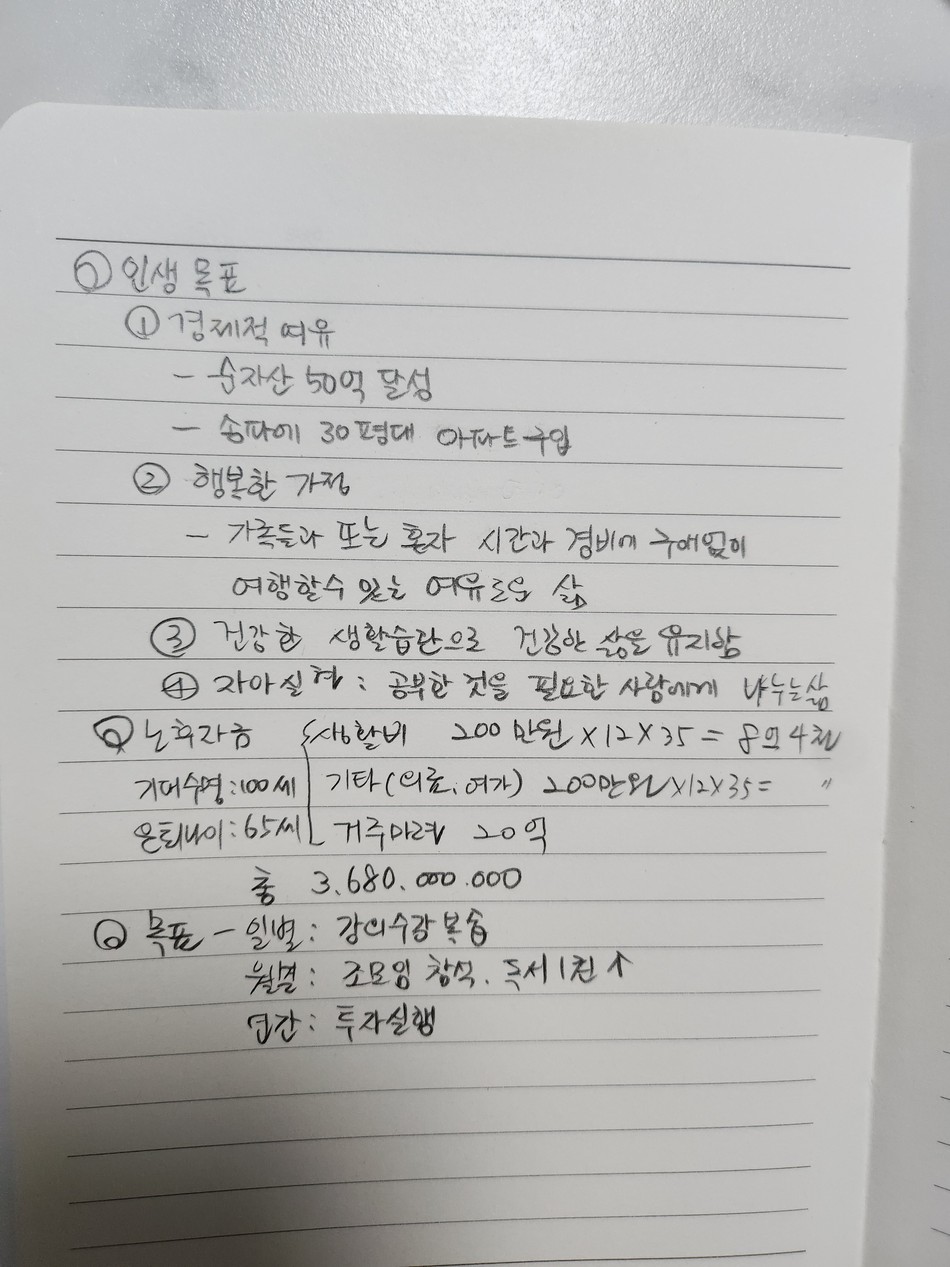 ○ 인생 목표
① 경제적 여유
- 순자산 50억 달성
- 송파에 30평대 아파트구입
② 행복한 가정
- 가족들과 또는 혼자 시간과 경비에 구애없이
여행할수 있는 여유로운 삶
③ 건강한 생활습관으로 건강한 삶을 유지함
④ 자아실현 : 공부한 것을 필요한 사람에게 나누는삶
○ 노후자금 생활비 200만원×12×35= 8억4천
기대수명:100세 기타(의료.여가) 200만원×12×35= 〃
은퇴나이:65세 거주마련 20억
총 3.680.000.000
○ 목표 - 일별: 강의수강 복습
월별: 조모임 참석. 독서1권↑
연간: 투자실행